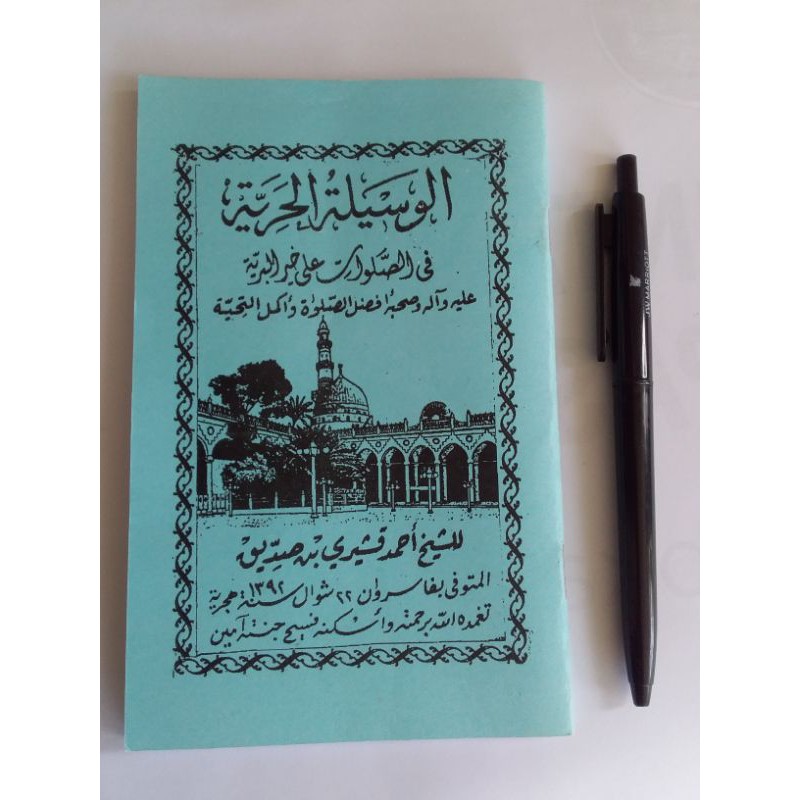 الوسيلة الحرية
فى الصلوات على خير البرية
عليه وآله وصحبه افضل الصلوة وأكمل التحية
للشيخ أحمد قشيري بن صديق
المتوفى بفاسروان ٢٢ شوال سنة ١٣٩٢ هجرية
تغمده الله برحمته وأسكنه فسيح جنته آمين
JW MARRIOTT